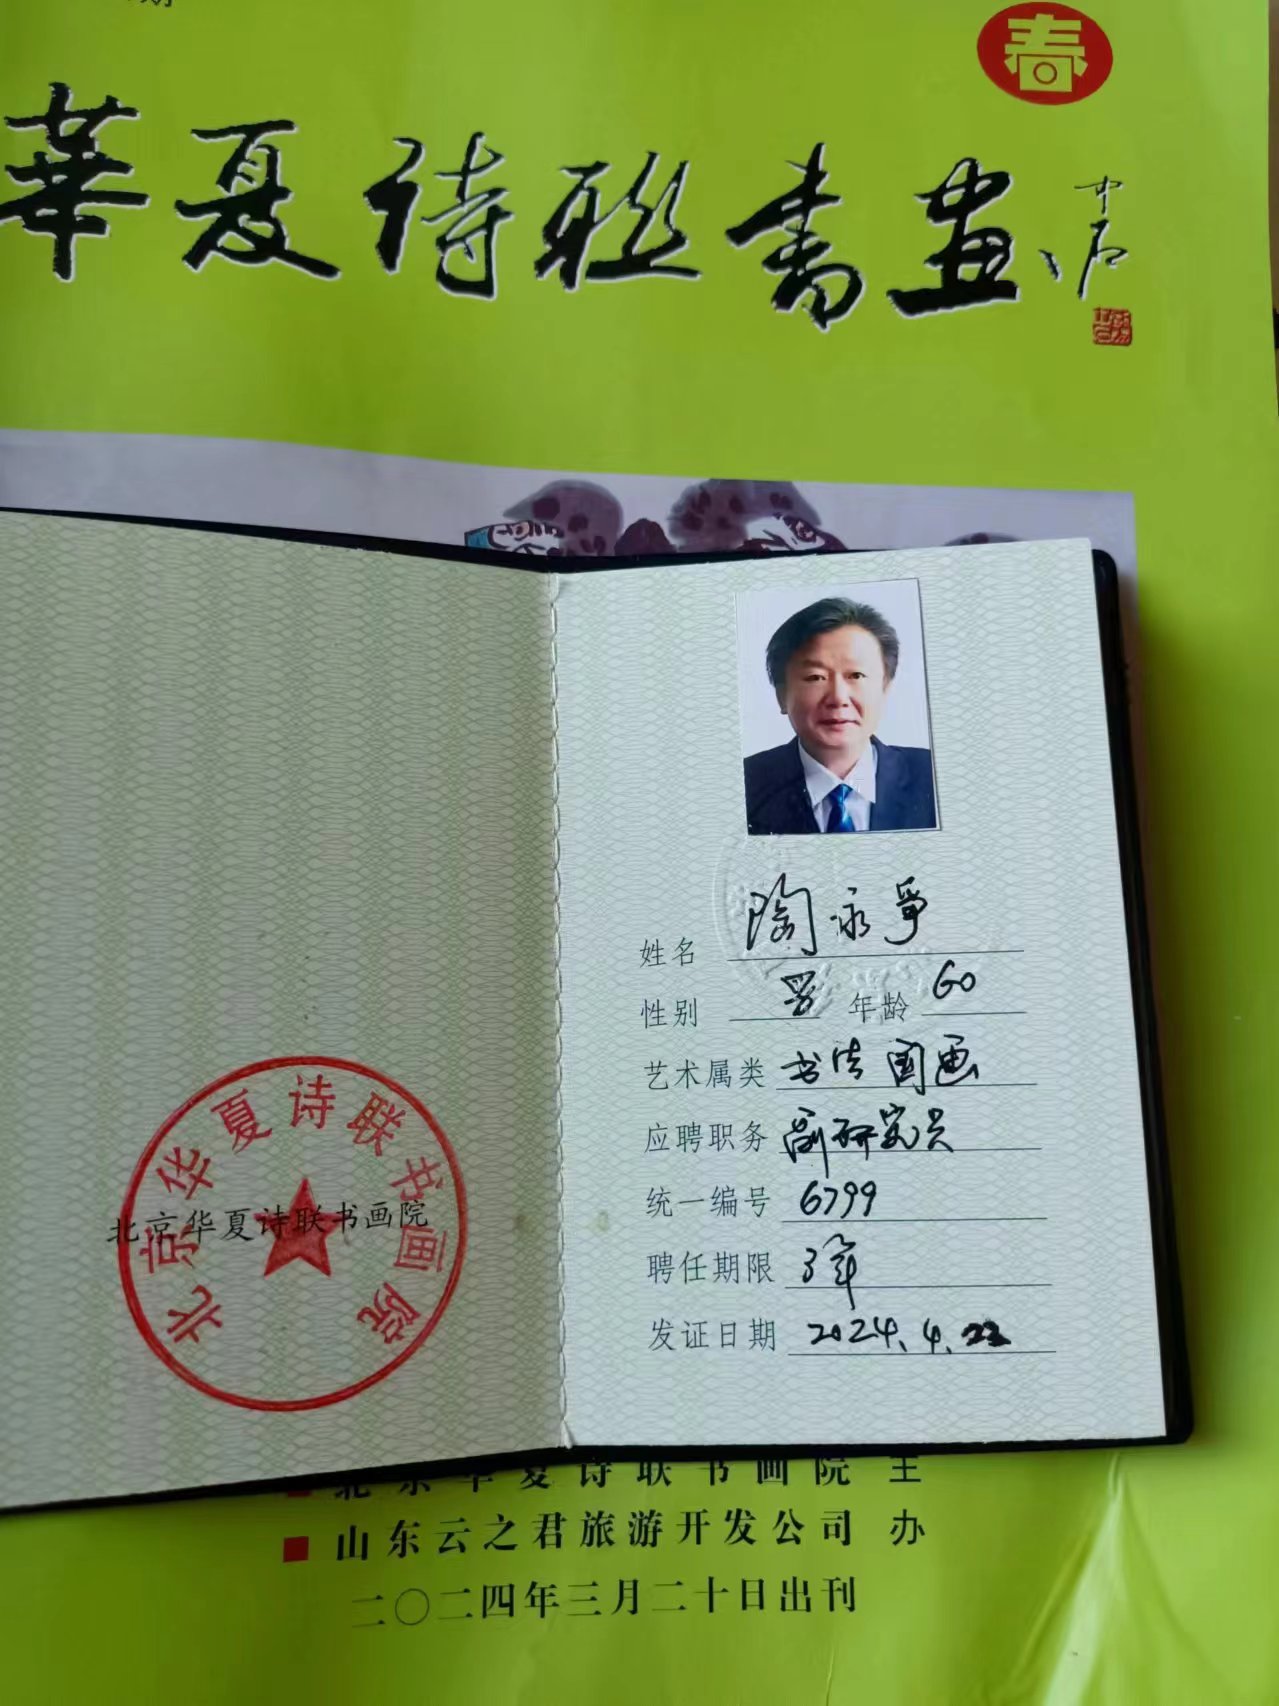 期
春
華夏诗联书画
中石
北京华夏诗联书画院
北京华夏诗联书画院
姓名 陶永争
性别 男 年龄 60
艺术属类 书法 国画
应聘职务 副研究员
统一编号 6799
聘任期限 3年
发证日期 2024.4.22
北京华夏诗联书画院 主
山东云之君旅游开发公司 办
二〇二四年三月二十日出刊